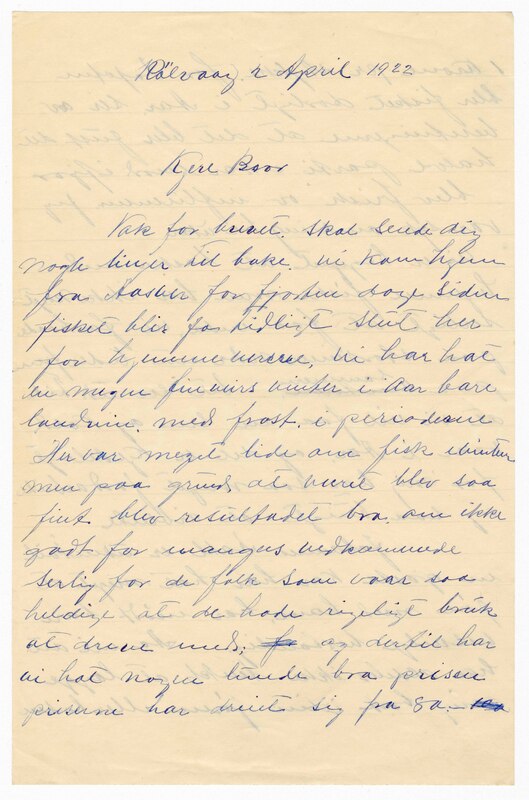 Kälvaag 2 April 1922
Kjere Boor
Tak for brevet. Skal sende dig
nogle linjer til bake. vi kom hjem
fra Aasver for fjorten dage siden
fisket blir saa tidligt slut her
for hjemmeværene, vi har hat
en megen fin veirs vinter i Aar bare
landvin. med frost. i perioderne
Her var meget lide om fisk ivinter
men paa grund at veiret blev saa
fint blev resultadet bra. om ikke
godt for manges vedkommende
serlig for de folk som vaar saa
heldige at de hade rigeligt bruk
at dreve med; og dertil har
vi hat nogen lunde bra prisen
priserne har dreiet sig fra 80.-